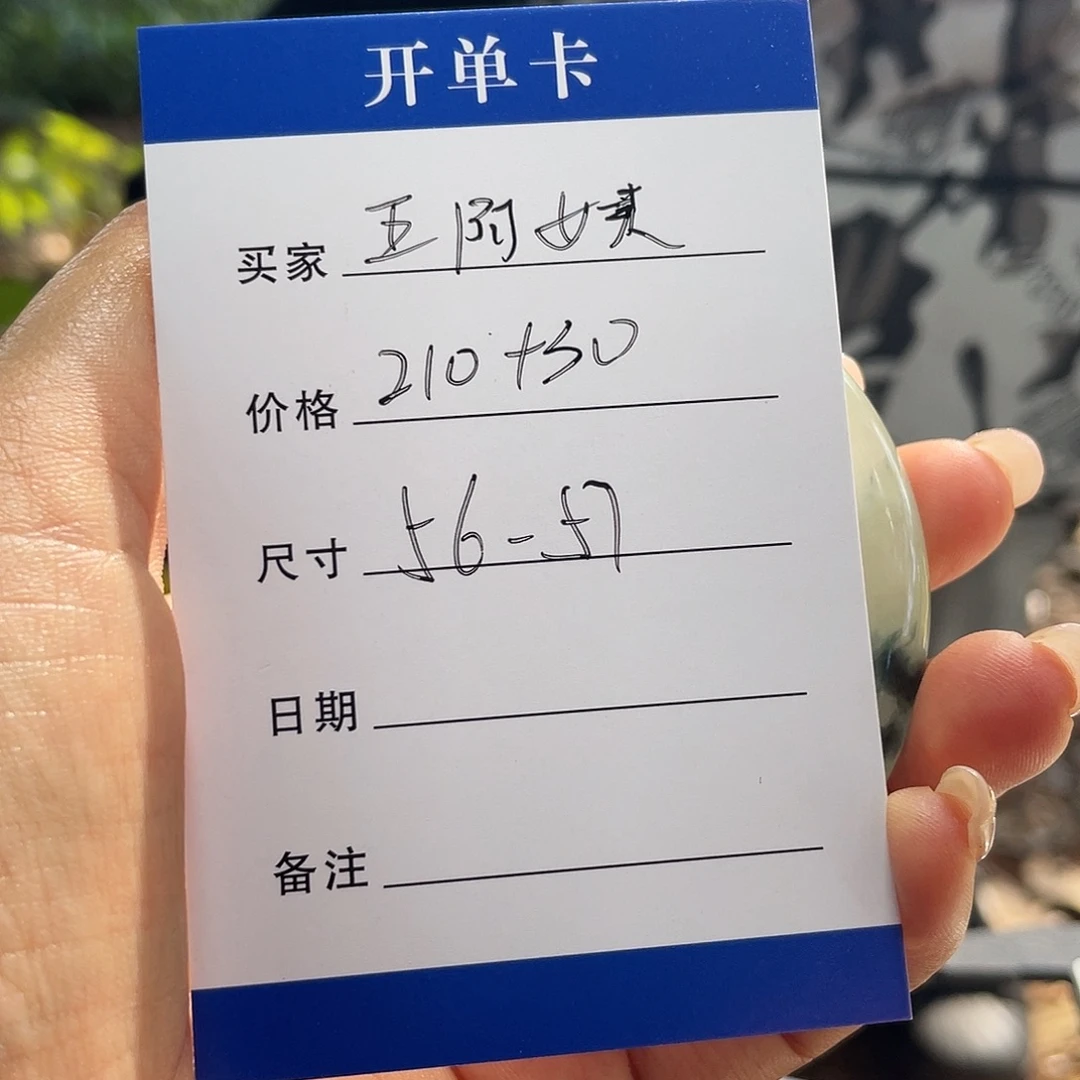 开单卡
买家 王
价格 210+30
尺寸 56-57
日期
备注